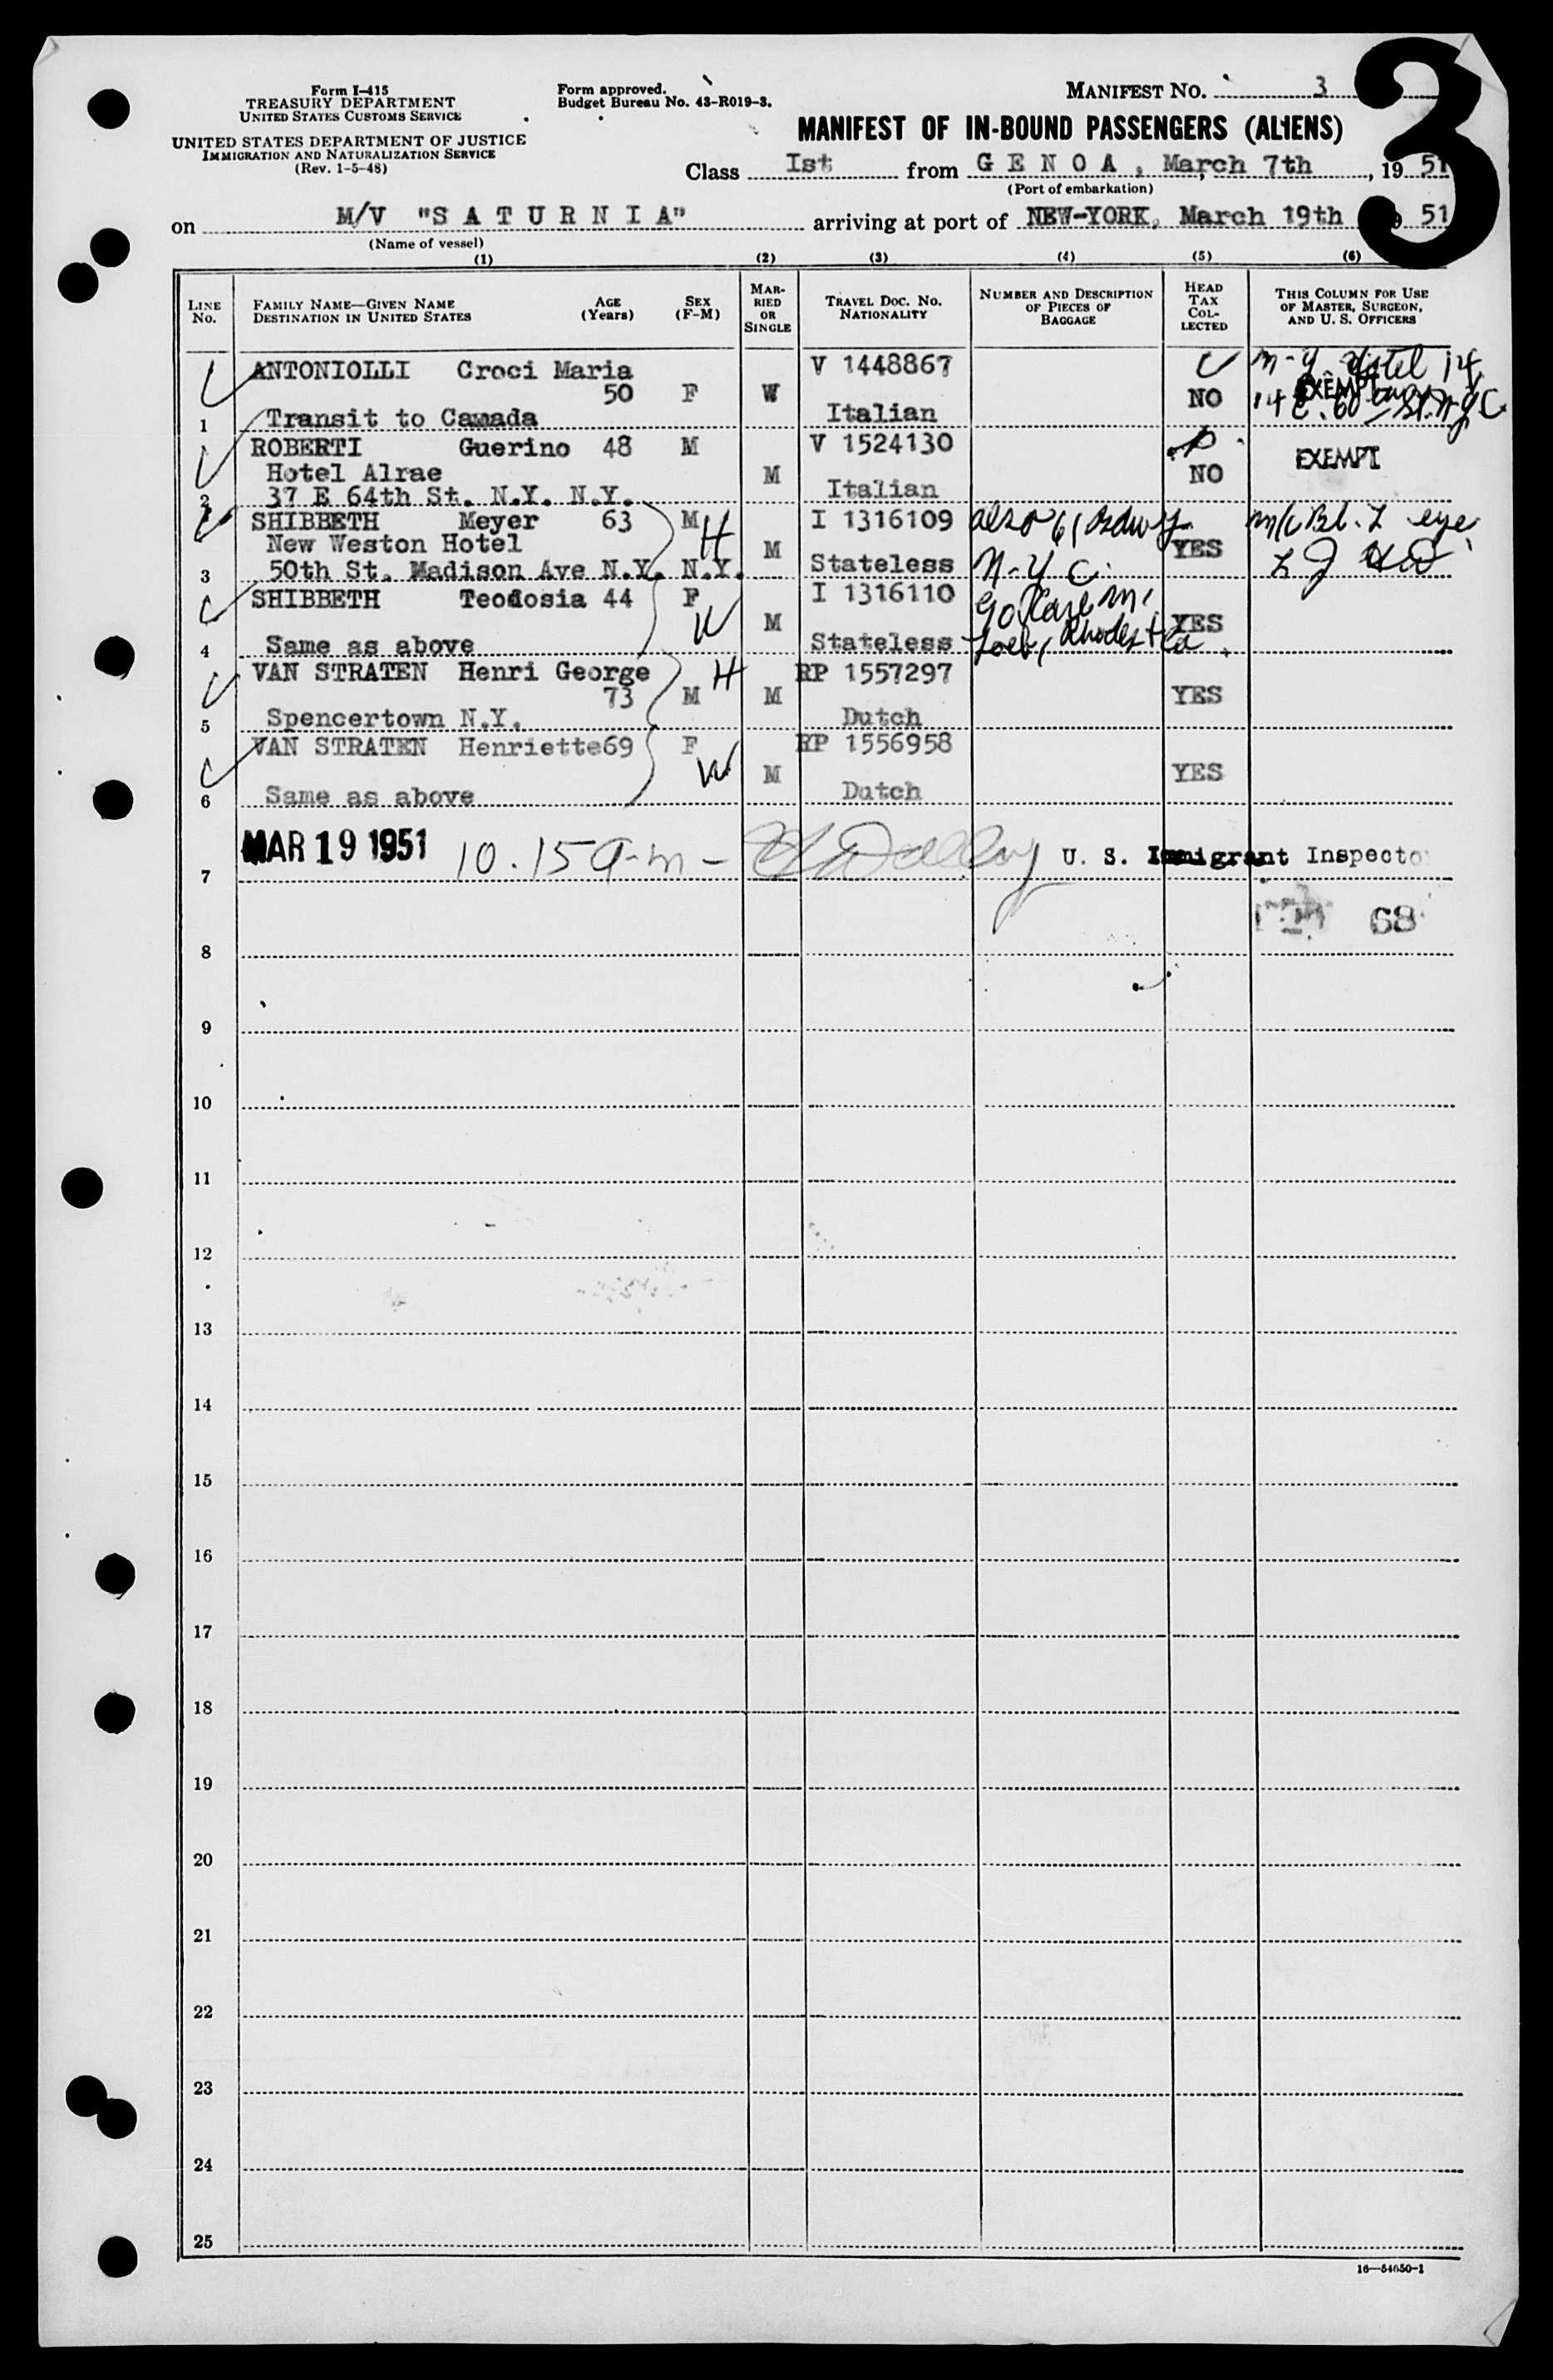 3
Form I-415
TREASURY DEPARTMENT
UNITED STATES CUSTOMS SERVICE
UNITED STATES DEPARTMENT OF JUSTICE
IMMIGRATION AND NATURALIZATION SERVICE
(Rev. 1-5-48)
Form approved.
Budget Bureau No. 43-R019-3.
MANIFEST NO. 3
MANIFEST OF IN-BOUND PASSENGERS (ALIENS)
Class Ist from G E N O A , March 7th , 19 51
(Port of embarkation)
on M/V "S A T U R N I A" arriving at port of NEW-YORK, March 19th 51
(Name of vessel)
(1) (2) (3) (4) (5) (6)
LINE No. FAMILY NAME—GIVEN NAME DESTINATION IN UNITED STATES AGE (Years) SEX (F-M) MARRIED OR SINGLE TRAVEL DOC. NO. NATIONALITY NUMBER AND DESCRIPTION OF PIECES OF BAGGAGE HEAD TAX COLLECTED THIS COLUMN FOR USE OF MASTER, SURGEON, AND U. S. OFFICERS
ANTONIOLLI Croci Maria V 1448867
50 F W NO EXEMPT
1 Transit to Canada Italian
ROBERTI Guerino 48 M V 1524130
Hotel Alrae M NO EXEMPT
2 37 E 64th St. N.Y. N.Y. Italian
SHIBBETH Meyer 63 M H I 1316109 also 61 Bdwy
New Weston Hotel M YES
3 50th St. Madison Ave N.Y. N.Y. Stateless N.Y.C.
SHIBBETH Teodosia 44 F W I 1316110
M YES
4 Same as above Stateless Loeb, Rhodes & Co
VAN STRATEN Henri George H RP 1557297
73 M M YES
5 Spencertown N.Y. Dutch
VAN STRATEN Henriette 69 F W RP 1556958
M YES
6 Same as above Dutch
MAR 19 1951 10.15 a-m - U. S. Immigrant Inspector
7
68
8
9
10
11
12
13
14
15
16
17
18
19
20
21
22
23
24
25
16—54650-1